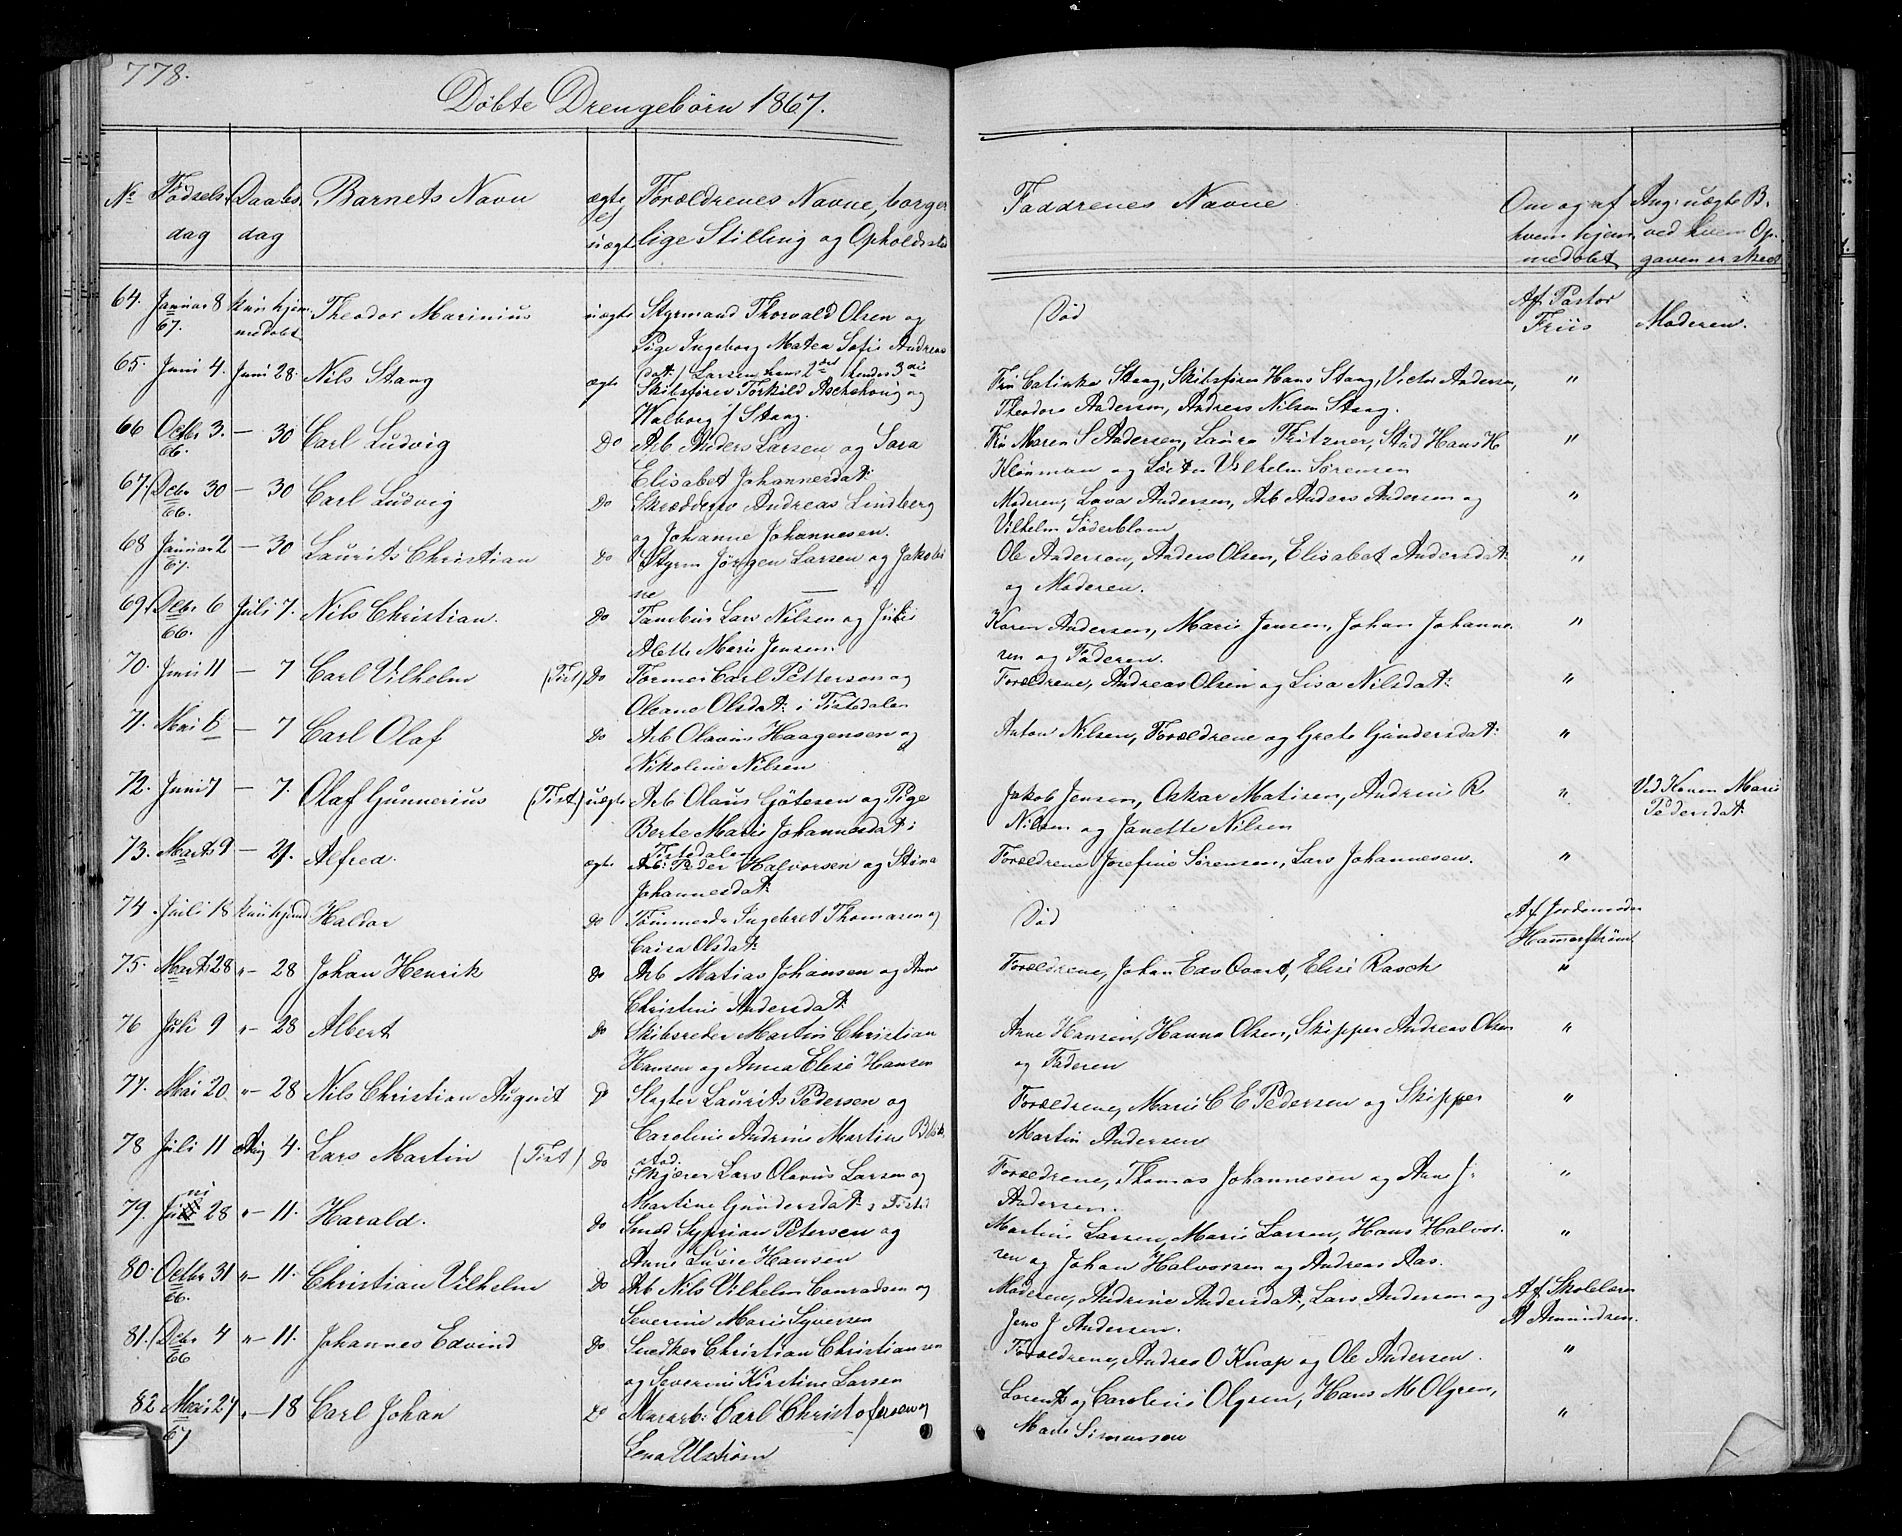 778.
Döbte Drengebörn 1867.
No Födselsdag Daabsdag Barnets Navn ægte ell uægte Forældrenes Navne, borgerlige Stilling og Opholdssted Faddrenes Navne Om og af hvem hjemmedöbt Ang. uægte B. ved hvem Opgaven er skeet
64. Januar 8 67. kun hjemmedöbt Theodor Marinius uægte Styrmand Thorvald Olsen og Död Af Pastor Friis Moderen.
Pige Ingeborg Matea Sofie Andreas
Dat: Larsen hans 2det hendes 3die
65. Juni 4. Juni 28. Nils Stang ægte Skibsförer Torkild Aschehoug og Fru Catinka Stang, Skibsförer Hans Stang, Victor Andersen, "
Walborg f Stang. Theodora Andersen, Andreas Nilsen Stang.
66 Octbr 3. 66. — 30 Carl Ludvig Do Arb Anders Larsen og Sara Fru Maren S Andersen, Laura Fritzner, Stud Hans H "
Elisabet Johannesdat: Klönman og Vilhelm Sörensen
67. Decbr 30 66. — 30 Carl Ludvig Do Skrædder Andreas Lindberg Moderen, Lova Andersen, Arb Anders Andersen og "
og Johanne Johannesen. Vilhelm Söderblom
68 Januar 2 67. — 30 Laurits Christian Do Styrm Jörgen Larsen og Jakobi Ole Andersen, Anders Olsen, Elisabet Andersdat: "
ne — og Moderen.
69. Decbr 6 66. Juli 7. Nils Christian. Do Tambur Lars Nilsen og Julie Karen Andersen, Marie Jensen, Johan Johanne "
Alette Marie Jensen. sen og Faderen.
70. Juni 11 — 7 Carl Vilhelm (Tist) Do Former Carl Petterson og Forældrene, Andreas Olsen og Lisa Nilsdat: "
Oleane Olsdat: i Tistedalen
71. Mai 6 — 7 Carl Olaf Do Arb Olavus Haagensen og Anton Nilsen, Forældrene og Grete Gundersdat: "
Nikoline Nilsen
72. Juni 7 — 7. Olaf Gunnerius (Tist) uægte Arb Olaus Götesen og Pige Jakob Jensen, Oskar Matisen, Andrine R " Ved Konen Marie
Berte Marie Johannesdat i Nilsen og Janette Nilsen Pedersdat:
Tistedalen
73. Marts 9 — 21. Alfred. ægte Arb: Peder Halvorsen og Stina Forældrene Josefine Sörensen, Lars Johannesen. "
Johannesdat:
74. Juli 18 kun hjemd Haldor Do Tömmermd Ingebret Thomasen og Död Af Jordemoder
Caisa Olsdat: Hammerström
75. Marts 28 "- 28 Johan Henrik Do Arb Matias Johansen og Ane Forældrene, Johan Edv Qvart, Elise Rasch "
Christine Andersdat:
76 Juli 9 "- 28 Albert Do Skibsreder Martin Christian Anne Hansen, Hanna Olsen, Skipper Andreas Olsen "
Hansen og Anna Elise Hansen og Faderen
77. Mai 20 "- 28 Nils Christian August Do Slagter Laurits Pedersen og Forældrene, Marie C E Pedersen og Skipper "
Caroline Andrine Martine Blök Martin Andersen
stad.
78 Juli 11 Aug 4. Lars Martin (Tist) Do Skjærer Lars Olavus Larsen og Forældrene, Thomas Johannesen og Ane J: "
Martine Gundersdat: i Tisted Andersen.
79. Juni 28 "- 11. Harald. Do Smed Syprian Petersen og Martine Larsen, Marie Larsen, Hans Halvor "
Anne Lusie Hansen sen og Johan Halvorsen og Andreas Aas.
80. Octbr 31 66. "- 11. Christian Vilhelm Do Arb Nils Vilhelm Conradsen og Moderen, Andrine Andersdat:, Lars Andersen og Af Skolelærer
Severine Marie Syversen Jens J Andersen. A Amundsen.
81. Decbr 4 66 "- 11. Johannes Edvind Do Snedker Christian Christiansen Forældrene, Andreas O Knap og Ole Andersen. "
og Severine Kirstine Larsen
82 Mai 27 67 "- 18 Carl Johan Do Murarb: Carl Christofersen og Lorents og Caroline Olgren, Hans M Olgren, "
Lena Ulström Marte Simensen